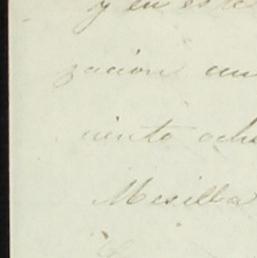 y en este
zacion un
ciento och
Mesilla